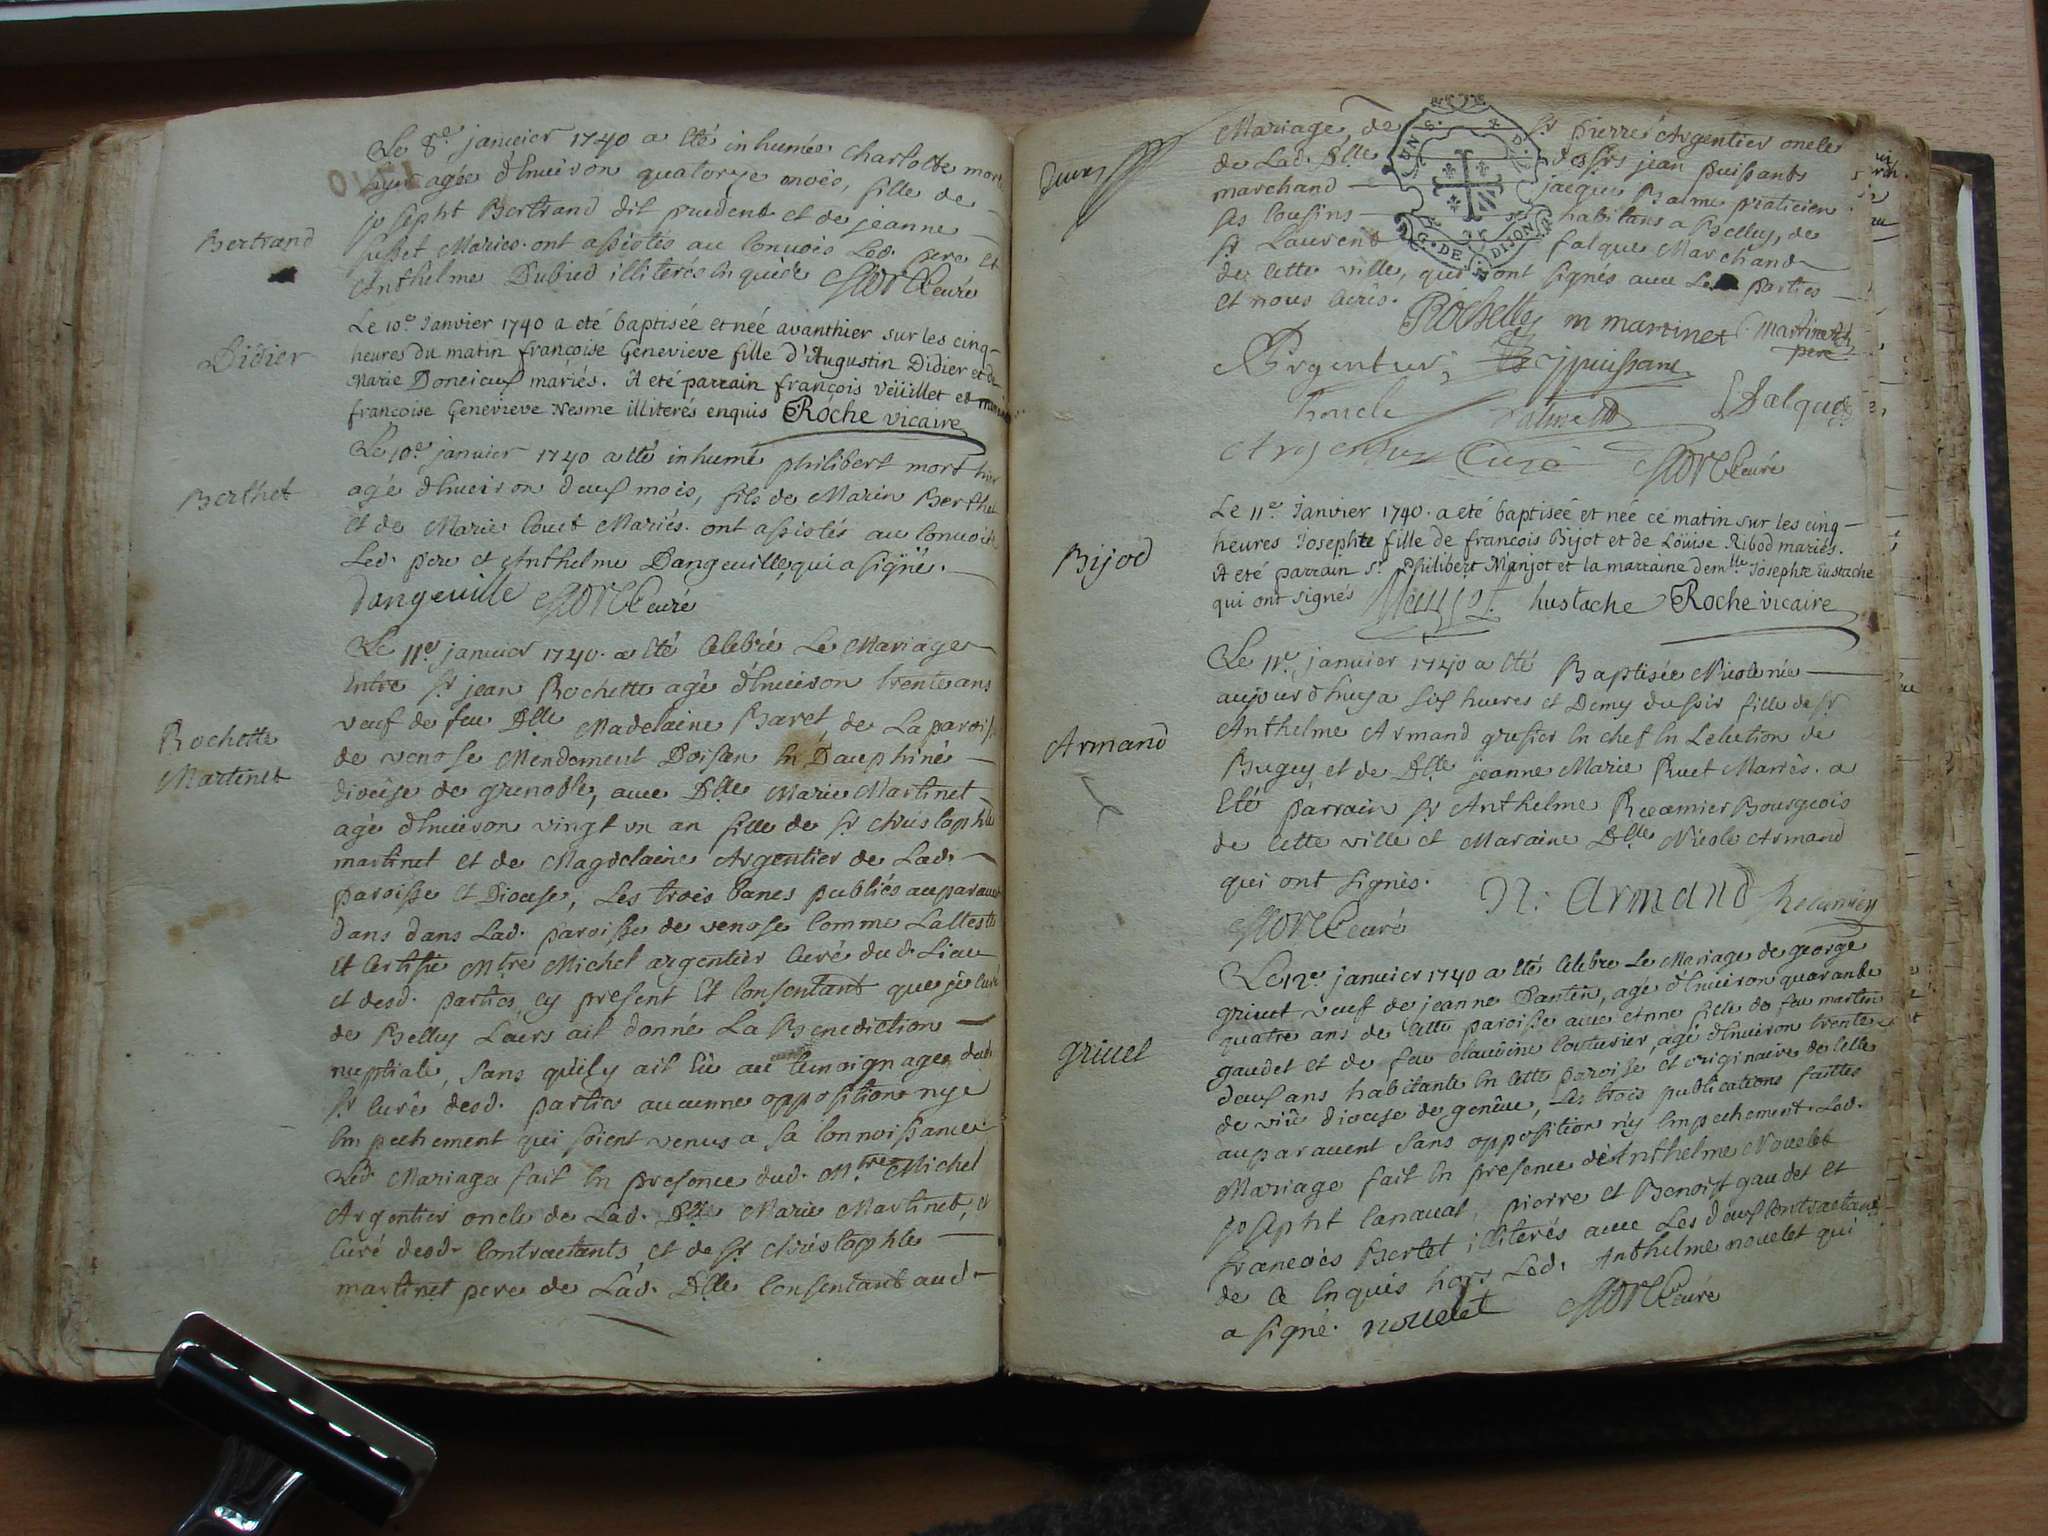 Le 8e janvier 1740 a eté inhumée charlotte morte
hyer agée d'huiron quatorze mois, fille de
josepht Bertrand dit prudent et de jeanne
Mariés. ont assistés au convois Led. pere et
Anthelme Dubied illiterés enquis Curé
Bertrand
Le 10e Janvier 1740 a eté baptisée et née avanthier sur les cinq
heures du matin françoise Genevieve fille d'Augustin Didier et de
Marie Doncieux mariés. A eté parrain françois Veüillet et
françoise Genevieve Nesme illiterés enquis Roche vicaire
Didier
Le 10e janvier 1740 a eté inhumé philibert mort hier
agé d'huiron deux mois, fils de Marin Berthet
et de Marie Mariés. ont assistés au convois
Led. pere et Anthelme Dangeville, qui a signé.
Dangeville Curé
Berthet
Le 11e janvier 1740. a eté Celebré Le Mariage
entre Sr jean Rochette agé d'huiron trente ans
veuf de feu Dlle Madelaine Baret, de La paroisse
de venose Mendement Doisan en Dauphiné
diocese de grenoble, avec Dlle Marie Martinet
agé d'huiron vingt un an fille de Sr christophle
martinet et de Magdelaine Argentier de Lad.
paroisse et Diocese, Les trois bancs publiés auparavant
dans dans Lad. paroisse de venose comme L'atteste
et certifie Mtre Michel argentier curé dud. Lieu
et desd. parties cy present et consentant que je curé
de Belley Leurs ait donné La Benediction
nuptiale, sans qu'il y ait eü au temoignage dud.
Sr curé desd. parties aucunne opposition ny
empechement qui soient venus a sa connoissance
Led. Mariage fait en presence dud. Mtre Michel
Argentier oncle de Lad. Dlle Marie Martinet, et
curé desd. contractants, et de Sr christophle
martinet pere de Lad. Dlle consentant aud.
Rochette
Martinet
Mariage, de Sr pierre Argentier oncle
de Lad. Dlle des Srs jean puissants
marchand jacque Balme praticien
ses cousins habitans a Belley, de
Sr Laurent falque Marchand
de cette ville, qui ont signés avec Les parties
et nous curés.
Rochette m martinet C. martinet
pere
Argentier jpuissant
honcle Balme falque
Argentier Curé Curé
Le 11e Janvier 1740. a eté baptisée et née ce matin sur les cinq
heures Josephte fille de françois Bijot et de Loüise Ribod mariés.
A eté parrain Sr Philibert Manjot et la marraine demlle Josephte Eustache
qui ont signés hustache Roche vicaire
Bijod
Le 11e janvier 1740 a eté Baptisée Nicole née
aujourdhuy a six heures et Demy du soir fille de Sr
Anthelme Armand grefier en chef en L'election de
Bugey et de Dlle jeanne Marie Ruet Mariés. a
Eté parrain Sr Anthelme Recamier Bourgeois
de cette ville et Maraine Dlle Nicole Armand
qui ont signés. N. Armand Recamier
Curé
Armand
Le 12e janvier 1740 a eté Celebré Le Mariage de george
grivet veuf de jeanne Pantin, agé d'huiron quarante
quatre ans de cette paroisse avec etnne fille de feu martin
gaudet et de feu claudine couturier, agé d'huiron trente
deux ans habitante en cette paroisse et originaire de celle
de viüe diocese de genêve, Les trois publications faittes
auparavent sans opposition n'y empechement. Led.
Mariage fait en presence de Anthelme Nouelet
josepht Canaual, pierre et Benoist gaudet et
francois Bertet illiterés avec Les deux contractants
de ce enquis hors Led. Anthelme nouelet qui
a signé. nouelet Curé
Griuet